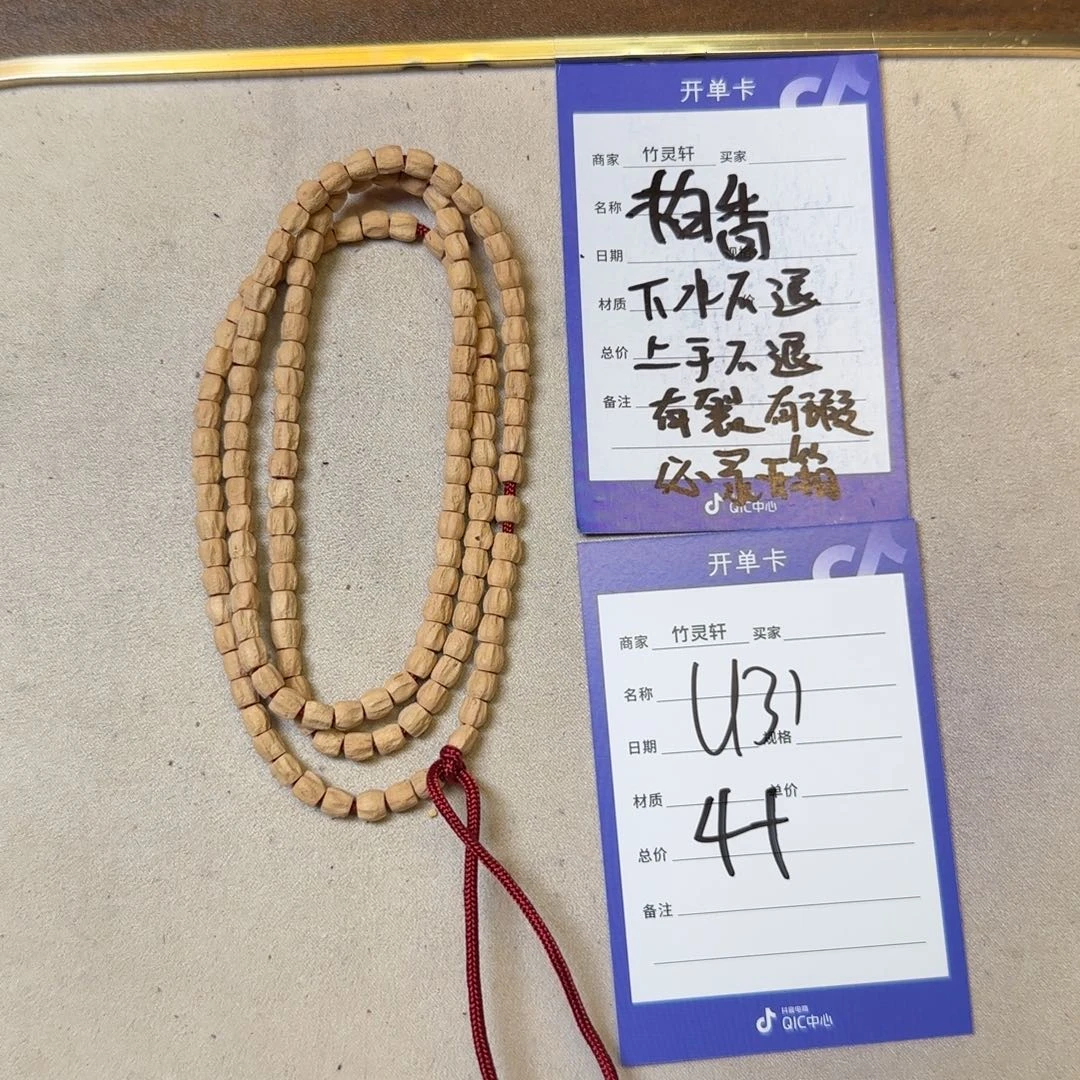 开单卡
商家 竹灵轩 买家
名称 柏香
日期 规格
材质 下水不退
总价 上手不退
备注 有裂有瑕
必录百箱
QIC中心
开单卡
商家 竹灵轩 买家
名称 U31
日期 规格
材质 单价
总价 44
备注
抖音电商
QIC中心